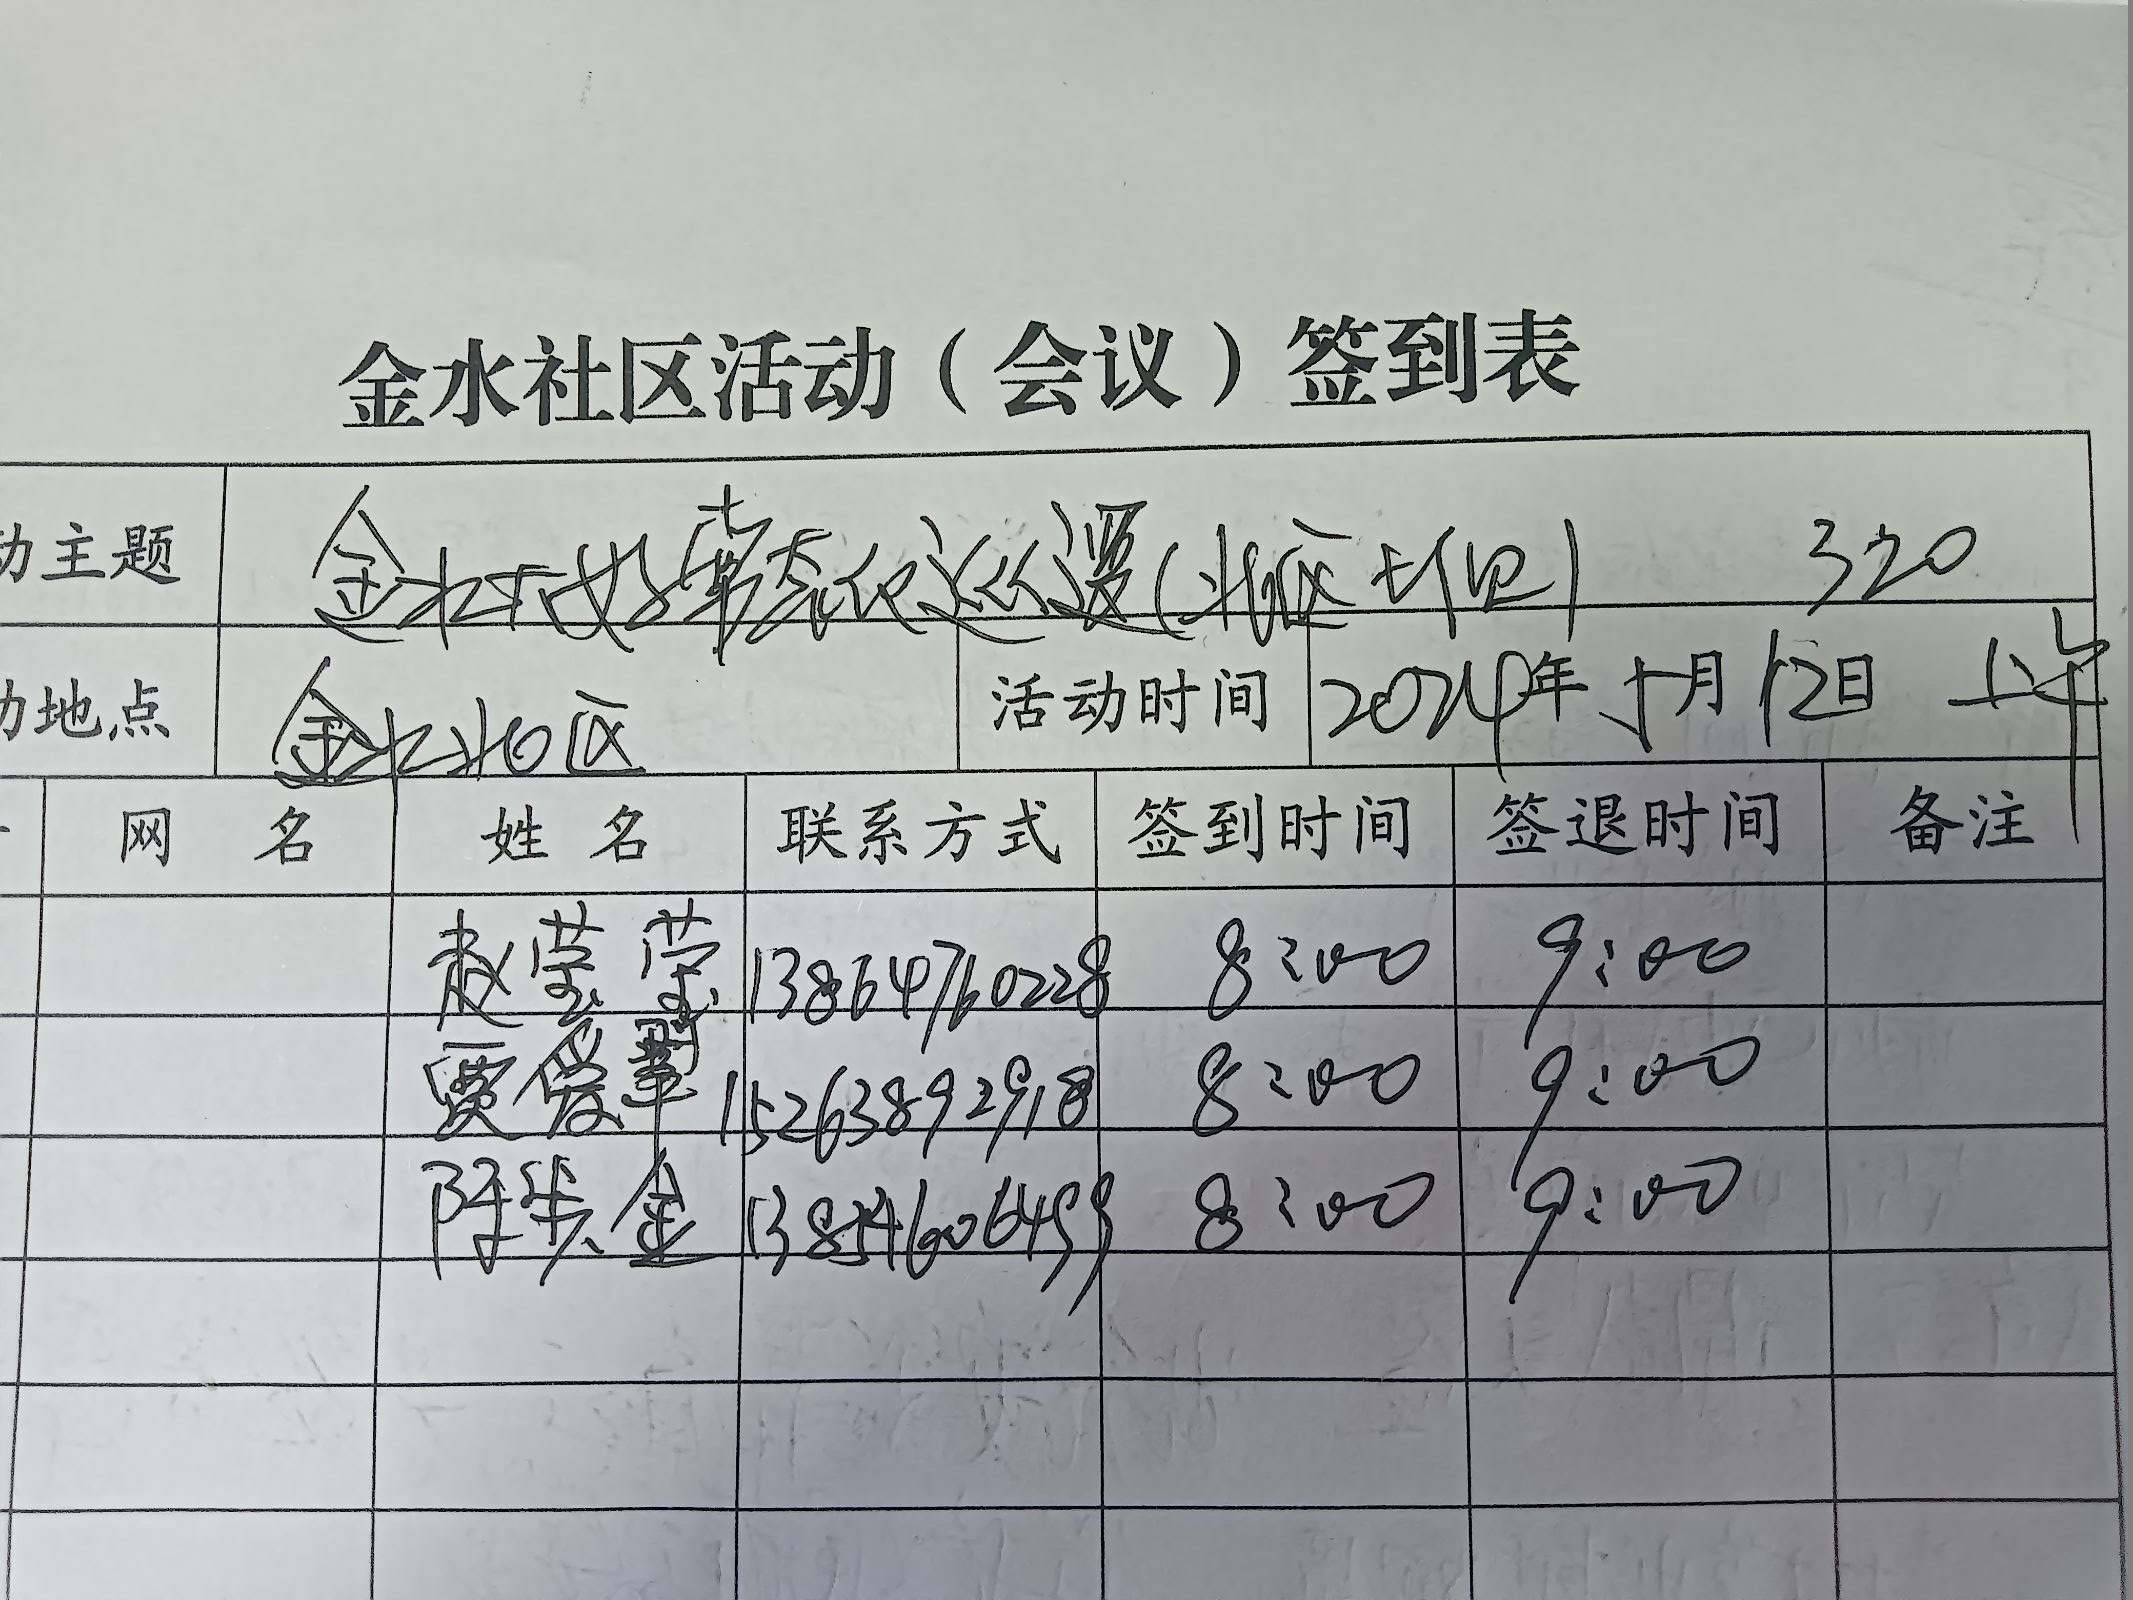 金水社区活动（会议）签到表
动主题 金水 常态化巡逻（北区 320
动地点 金水北区 活动时间 2024年5月12日 上午
网 名 姓 名 联系方式 签到时间 签退时间 备注
赵莹莹 13864760228 8:00 9:00
贾爱翠 15263892918 8:00 9:00
陈 金 8:00 9:00